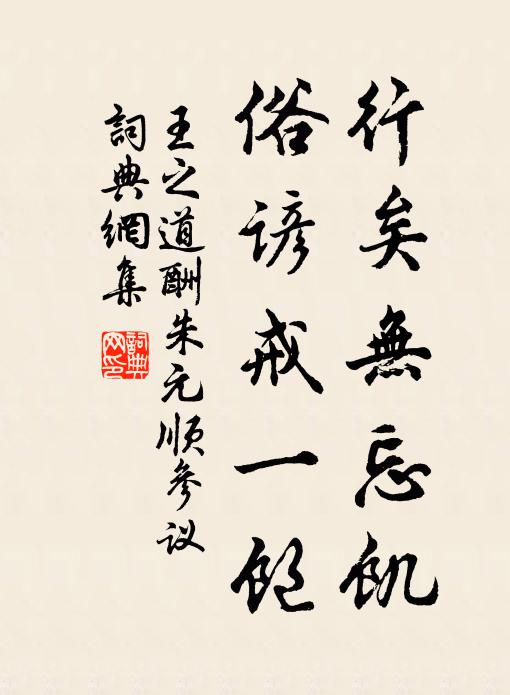 行矣無忘飢
俗諺戒一飽
王之道酬朱元順參议
詞典網集
詞典
网印